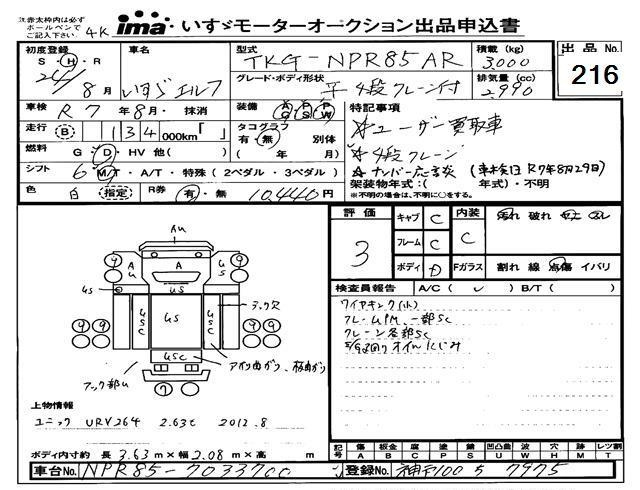 注.赤太枠内は必ず
ボールペンで
ご記入下さい.
4K
ima いすゞモーターオークション出品申込書
初度登録
S・H・R
24/8月
車名
いすゞエルフ
型式
TKG-NPR85AR
積載(kg)
3000
グレード・ボディ形状
平 4段クレーン付
排気量(cc)
2990
出品No.
216
車検 R7年8月・抹消
装備 AC PS PW
走行 (B) 134,000km「」
タコグラフ
有・無 別体
(年 月)
燃料 G・D・HV 他( )
シフト 6 M/T・A/T・特殊(2ペダル・3ペダル)
色 白 指定
R券 有・無 10,440円
特記事項
☆ユーザー買取車
☆4段クレーン
(車検R7年8月29日)
架装物年式:( 年式)・不明
※不明の場合は、不明に○をする。
評価
3
キャブ C
フレーム C
ボディ D
内装 C
汚れ 破れ
Fガラス 割れ 線 点傷 イバリ
検査員報告 A/C( ✓ ) B/T( )
ワイヤキンク(小)
クレーン各部SC
AU
A
US
US
USC
USC
USC
フック穴
フック部U
上物情報
ユニック URV264 2.63t 2012.8
ボディ内寸約 長 3.63m×幅 2.08m×高 m
記号 傷 A 板金 B 腐 C 塗 P 錆 S 凹凸曲 U 波 W 穴 H 跡 M レツ割 T
車台No. NPR85-7033700
登録No. 神戸100 す 7975